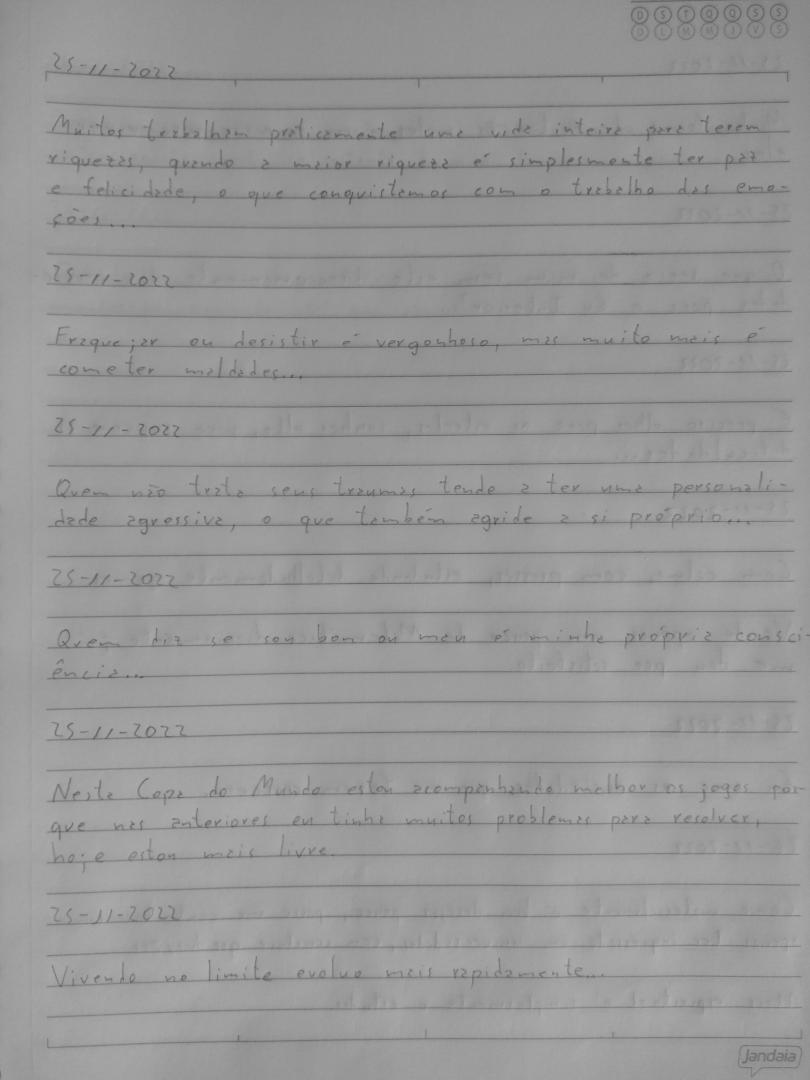 D S T Q Q S S
D L M M J V S
25-11-2022
Muitos trabalham praticamente uma vida inteira para terem
riquezas, quando a maior riqueza é simplesmente ter paz
e felicidade, o que conquistamos com o trabalho das emo-
ções...
25-11-2022
Fraquejar ou desistir é vergonhoso, mas muito mais é
cometer maldades...
25-11-2022
Quem não trata seus traumas tende a ter uma personali-
dade agressiva, o que também agride a si próprio...
25-11-2022
Quem diz se sou bom ou mau é minha própria consci-
ência...
25-11-2022
Nesta Copa do Mundo estou acompanhando melhor os jogos por-
que nas anteriores eu tinha muitos problemas para resolver,
hoje estou mais livre.
25-11-2022
Vivendo no limite evoluo mais rapidamente...
Jandaia